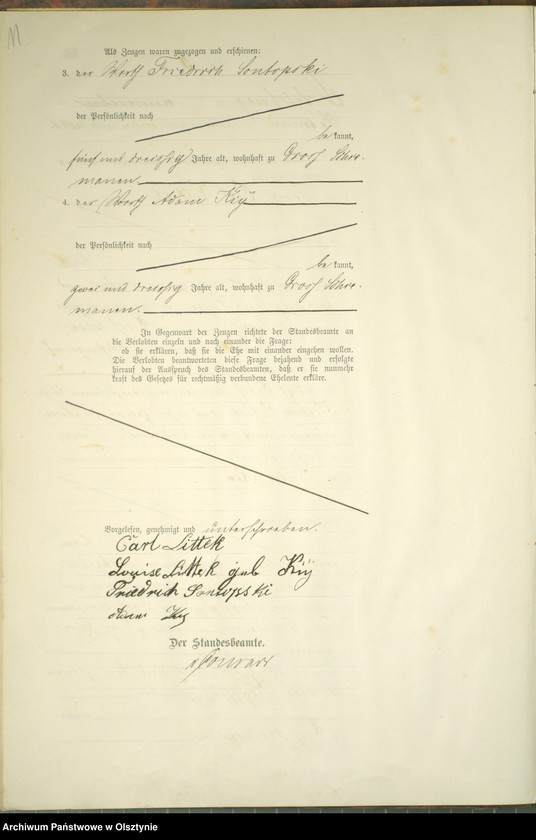 Als Zeugen waren zugezogen und erschienen:
3. der Wirth Friedrich Sontopski
der Persönlichkeit nach
be kannt,
fünf und dreißig Jahre alt, wohnhaft zu Groß Schie-
manen.
4. der Wirth Adam Kiÿ
der Persönlichkeit nach
be kannt,
zwei und dreißig Jahre alt, wohnhaft zu Groß Schie-
manen.
In Gegenwart der Zeugen richtete der Standesbeamte an
die Verlobten einzeln und nach einander die Frage:
ob sie erklären, daß sie die Ehe mit einander eingehen wollen.
Die Verlobten beantworteten diese Frage bejahend und erfolgte
hierauf der Ausspruch des Standesbeamten, daß er sie nunmehr
kraft des Gesetzes für rechtmäßig verbundene Eheleute erkläre.
Vorgelesen, genehmigt und unterschrieben.
Carl Littek
Louise Littek geb Kiÿ
Friedrich
Adam Kiÿ
Der Standesbeamte.
Archiwum Państwowe w Olsztynie